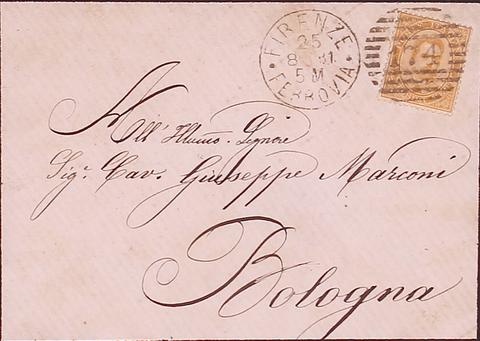 FIRENZE
25
8
81
5 M
FERROVIA
All' Illmo. Signore
Sig.r Cav. Giuseppe Marconi
Bologna